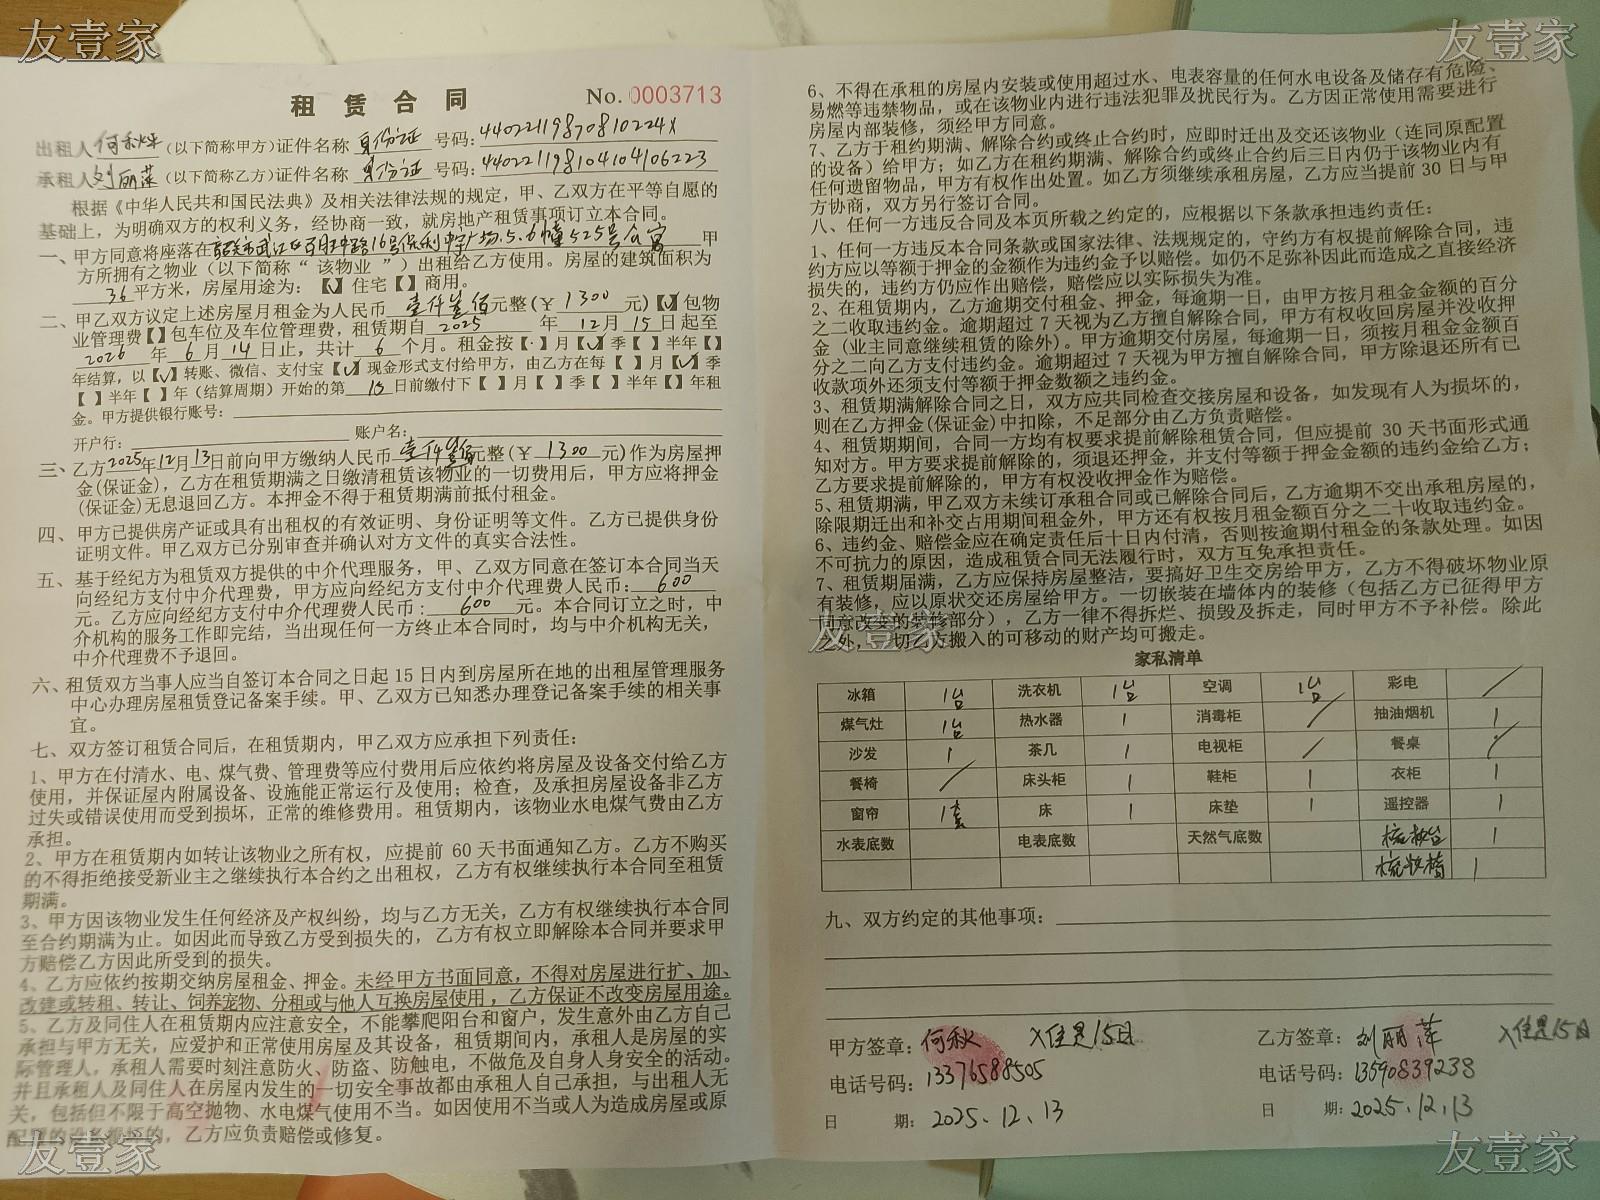 友壹家
友壹家
租赁合同 No. 0003713
出租人何秋 (以下简称甲方)证件名称 身份证 号码:
承租人刘丽萍 (以下简称乙方)证件名称 身份证 号码:
根据《中华人民共和国民法典》及相关法律法规的规定，甲、乙双方在平等自愿的
基础上，为明确双方的权利义务，经协商一致，就房地产租赁事项订立本合同。
一、甲方同意将座落在 16号保利中 广场.5.6幢525号公寓 甲
方所拥有之物业（以下简称“该物业”）出租给乙方使用。房屋的建筑面积为
36 平方米，房屋用途为：【√】住宅【 】商用。
二、甲乙双方议定上述房屋月租金为人民币 壹仟叁佰元整(￥1300元)【√】包物
业管理费【 】包车位及车位管理费，租赁期自 2025 年 12 月 15 日起至
2026 年 6 月 14 日止，共计 6 个月。租金按【 】月【√】季【 】半年【 】
年结算，以【√】转账、微信、支付宝【√】现金形式支付给甲方，由乙方在每【 】月【√】季
【 】半年【 】年（结算周期）开始的第 日前缴付下【 】月【 】季【 】半年【 】年租
金。甲方提供银行账号：
开户行： 账户名：
三、乙方2025年12月13日前向甲方缴纳人民币 壹仟叁佰元整(￥1300元)作为房屋押
金(保证金)，乙方在租赁期满之日缴清租赁该物业的一切费用后，甲方应将押金
(保证金)无息退回乙方。本押金不得于租赁期满前抵付租金。
四、甲方已提供房产证或具有出租权的有效证明、身份证明等文件。乙方已提供身份
证明文件。甲乙双方已分别审查并确认对方文件的真实合法性。
五、基于经纪方为租赁双方提供的中介代理服务，甲、乙双方同意在签订本合同当天
向经纪方支付中介代理费，甲方应向经纪方支付中介代理费人民币：600
元。乙方应向经纪方支付中介代理费人民币：600元。本合同订立之时，中
介机构的服务工作即完结，当出现任何一方终止本合同时，均与中介机构无关，
中介代理费不予退回。
六、租赁双方当事人应当自签订本合同之日起 15 日内到房屋所在地的出租屋管理服务
中心办理房屋租赁登记备案手续。甲、乙双方已知悉办理登记备案手续的相关事
宜。
七、双方签订租赁合同后，在租赁期内，甲乙双方应承担下列责任：
1、甲方在付清水、电、煤气费、管理费等应付费用后应依约将房屋及设备交付给乙方
使用，并保证屋内附属设备、设施能正常运行及使用；检查，及承担房屋设备非乙方
过失或错误使用而受到损坏，正常的维修费用。租赁期内，该物业水电煤气费由乙方
承担。
2、甲方在租赁期内如转让该物业之所有权，应提前 60 天书面通知乙方。乙方不购买
的不得拒绝接受新业主之继续执行本合约之出租权，乙方有权继续执行本合同至租赁
期满。
3、甲方因该物业发生任何经济及产权纠纷，均与乙方无关，乙方有权继续执行本合同
至合约期满为止。如因此而导致乙方受到损失的，乙方有权立即解除本合同并要求甲
方赔偿乙方因此所受到的损失。
4、乙方应依约按期交纳房屋租金、押金。未经甲方书面同意，不得对房屋进行扩、加、
改建或转租、转让、饲养宠物、分租或与他人互换房屋使用，乙方保证不改变房屋用途。
5、乙方及同住人在租赁期内应注意安全，不能攀爬阳台和窗户，发生意外由乙方自己
承担与甲方无关，应爱护和正常使用房屋及其设备，租赁期间内，承租人是房屋的实
际管理人，承租人需要时刻注意防火、防盗、防触电，不做危及自身人身安全的活动。
并且承租人及同住人在房屋内发生的一切安全事故都由承租人自己承担，与出租人无
关，包括但不限于高空抛物、水电煤气使用不当。如因使用不当或人为造成房屋或原
配置的设备损坏的，乙方应负责赔偿或修复。
6、不得在承租的房屋内安装或使用超过水、电表容量的任何水电设备及储存有危险、
易燃等违禁物品，或在该物业内进行违法犯罪及扰民行为。乙方因正常使用需要进行
房屋内部装修，须经甲方同意。
7、乙方于租约期满、解除合约或终止合约时，应即时迁出及交还该物业（连同原配置
的设备）给甲方；如乙方在租约期满、解除合约或终止合约后三日内仍于该物业内有
任何遗留物品，甲方有权作出处置。如乙方须继续承租房屋，乙方应当提前 30 日与甲
方协商，双方另行签订合同。
八、任何一方违反合同及本页所载之约定的，应根据以下条款承担违约责任：
1、任何一方违反本合同条款或国家法律、法规规定的，守约方有权提前解除合同，违
约方应以等额于押金的金额作为违约金予以赔偿。如仍不足弥补因此而造成之直接经济
损失的，违约方仍应作出赔偿，赔偿应以实际损失为准。
2、在租赁期内，乙方逾期交付租金、押金，每逾期一日，由甲方按月租金金额的百分
之二收取违约金。逾期超过 7 天视为乙方擅自解除合同，甲方有权收回房屋并没收押
金（业主同意继续租赁的除外）。甲方逾期交付房屋，每逾期一日，须按月租金金额百
分之二向乙方支付违约金。逾期超过 7 天视为甲方擅自解除合同，甲方除退还所有已
收款项外还须支付等额于押金数额之违约金。
3、租赁期满解除合同之日，双方应共同检查交接房屋和设备，如发现有人为损坏的，
则在乙方押金(保证金)中扣除，不足部分由乙方负责赔偿。
4、租赁期期间，合同一方均有权要求提前解除租赁合同，但应提前 30 天书面形式通
知对方。甲方要求提前解除的，须退还押金，并支付等额于押金金额的违约金给乙方；
乙方要求提前解除的，甲方有权没收押金作为赔偿。
5、租赁期满，甲乙双方未续订承租合同或已解除合同后，乙方逾期不交出承租房屋的，
除限期迁出和补交占用期间租金外，甲方还有权按月租金额百分之二十收取违约金。
6、违约金、赔偿金应在确定责任后十日内付清，否则按逾期付租金的条款处理。如因
不可抗力的原因，造成租赁合同无法履行时，双方互免承担责任。
7、租赁期届满，乙方应保持房屋整洁，要搞好卫生交房给甲方，乙方不得破坏物业原
有装修，应以原状交还房屋给甲方。一切嵌装在墙体内的装修（包括乙方已征得甲方
同意改变的装修部分），乙方一律不得拆烂、损毁及拆走，同时甲方不予补偿。除此
之外，一切乙方搬入的可移动的财产均可搬走。
友壹家
家私清单
冰箱 1台 洗衣机 1台 空调 1台 彩电 /
煤气灶 1台 热水器 1 消毒柜 / 抽油烟机 1
沙发 1 茶几 1 电视柜 / 餐桌 /
餐椅 / 床头柜 1 鞋柜 1 衣柜 1
窗帘 1套 床 1 床垫 1 遥控器 1
水表底数 电表底数 天然气底数 梳妆台 1
梳妆椅 1
九、双方约定的其他事项：
甲方签章：何秋 乙方签章：刘丽萍
电话号码：13376588505 电话号码：13590839238
日 期：2025.12.13 日 期：2025.12.13
友壹家
友壹家